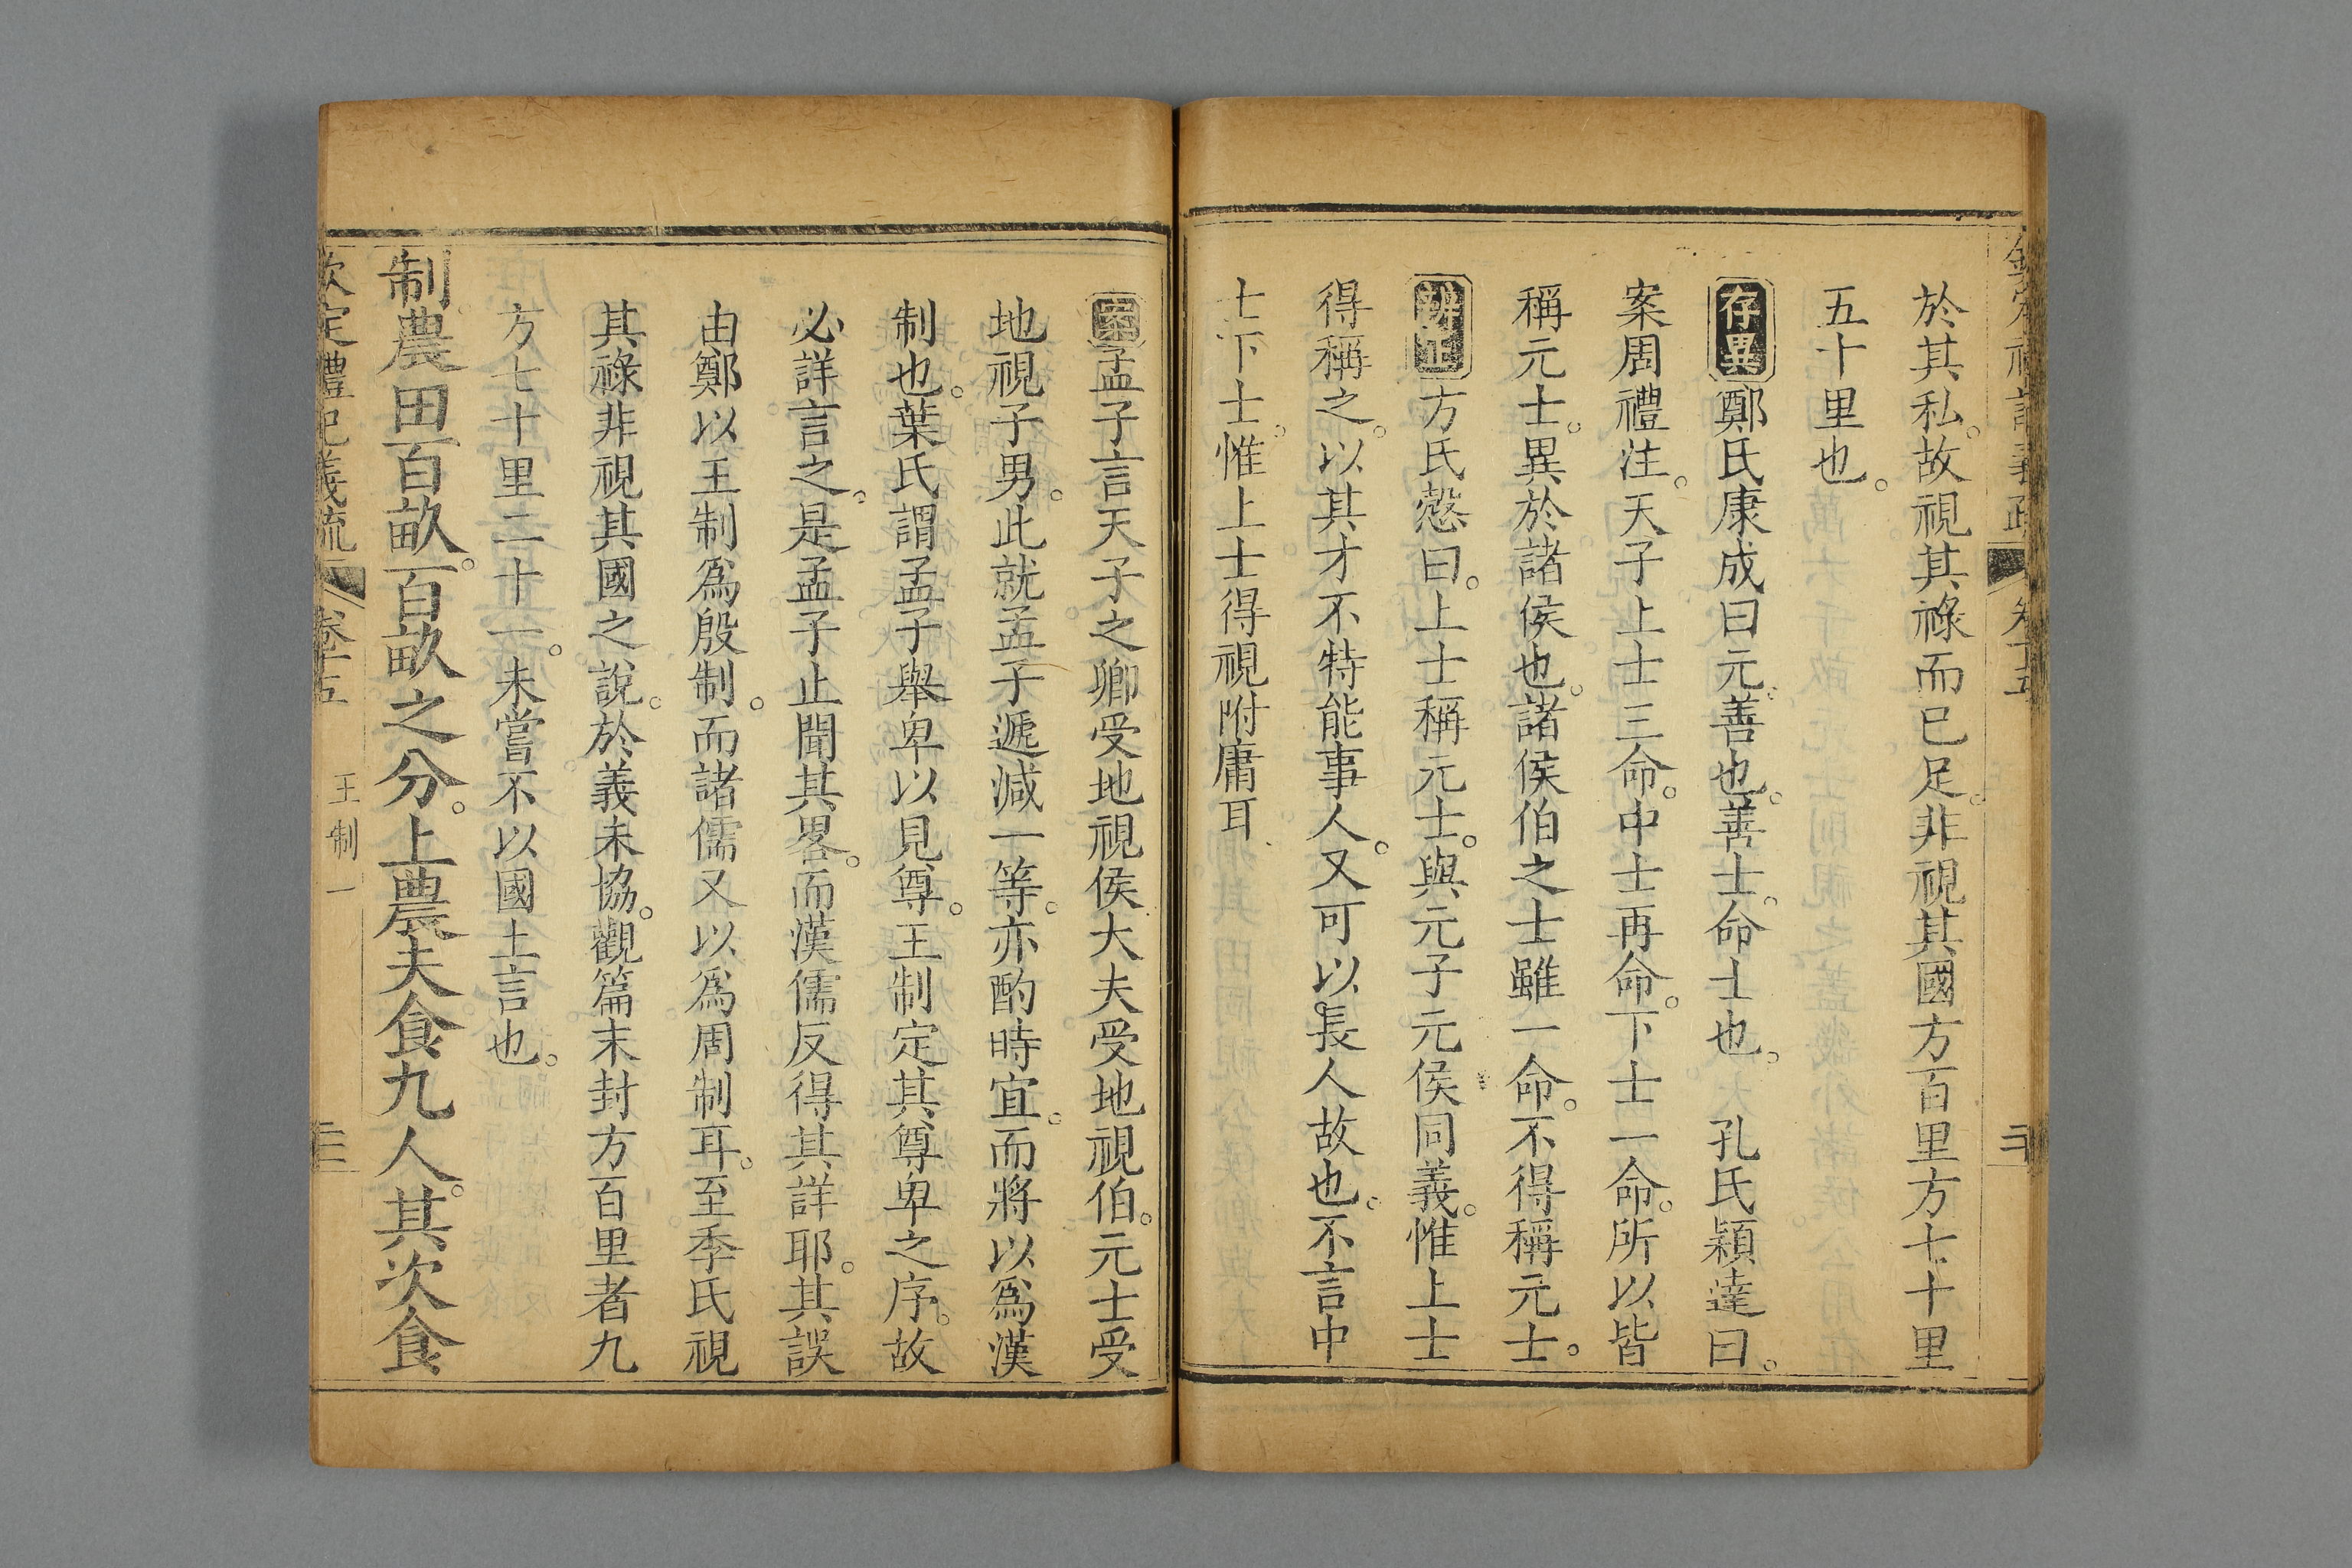 欽定禮記義疏 卷十五 三十
於其私。故視其祿而已足。非視其國方百里方七十里
五十里也。
存異鄭氏康成曰元。善也。善士。命士也。 孔氏穎達曰。
案周禮注。天子上士三命。中士再命。下士一命。所以皆
稱元士。異於諸侯也。諸侯伯之士雖一命。不得稱元士。
辨正方氏慤曰。上士稱元士。與元子元侯同義。惟上士
得稱之。以其才不特能事人。又可以長人故也。不言中
士下士。惟上士得視附庸耳
案孟子言天子之卿受地視侯大夫受地視伯。元士受
地視子男。此就孟子遞減一等。亦酌時宜。而將以爲漢
制也。葉氏謂孟子舉卑以見尊。王制定其尊卑之序。故
必詳言之。是孟子止聞其畧。而漢儒反得其詳耶。其誤
由鄭以王制爲殷制。而諸儒又以爲周制耳。至季氏視
其祿非視其國之說。於義未協。觀篇末封方百里者九
方七十里二十一。未嘗不以國土言也。
制農田百畝。百畝之分。上農夫食九人。其次食
欽定禮記義疏 卷十五 王制一